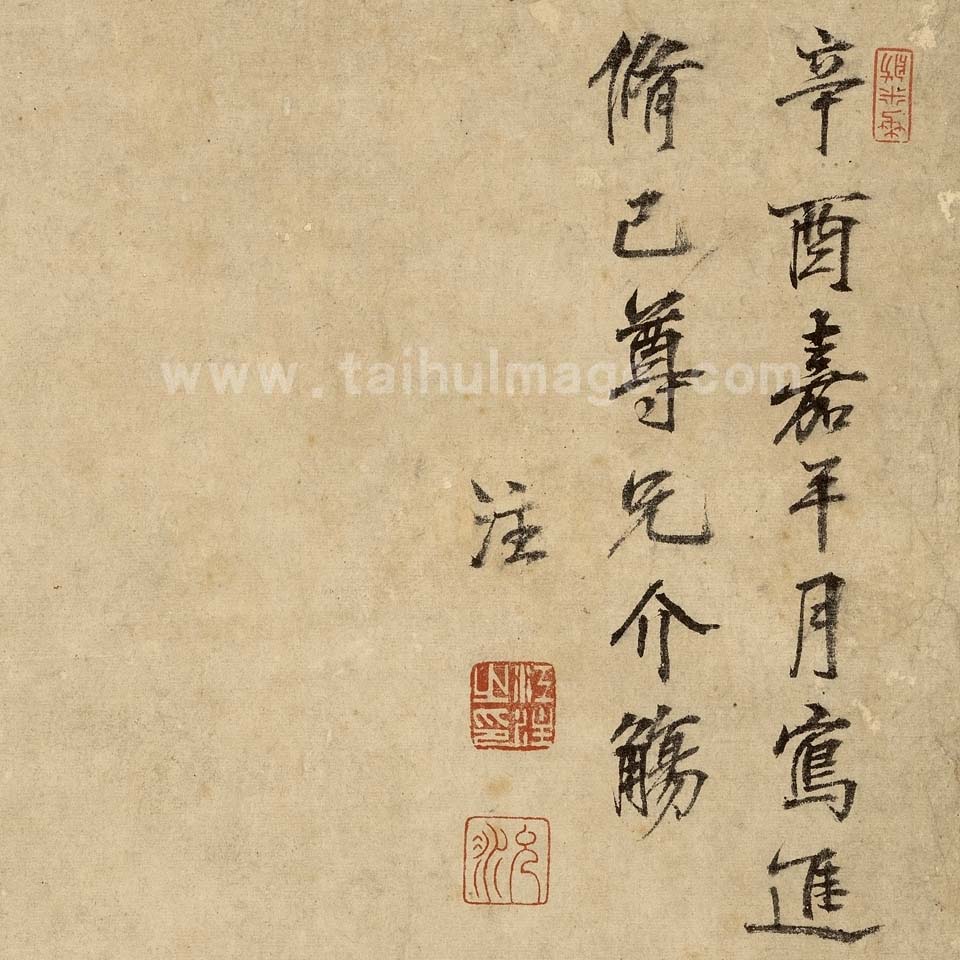 辛酉嘉平月寫進
脩己尊兄介觴
注
江注之印
www.taihuImage.com